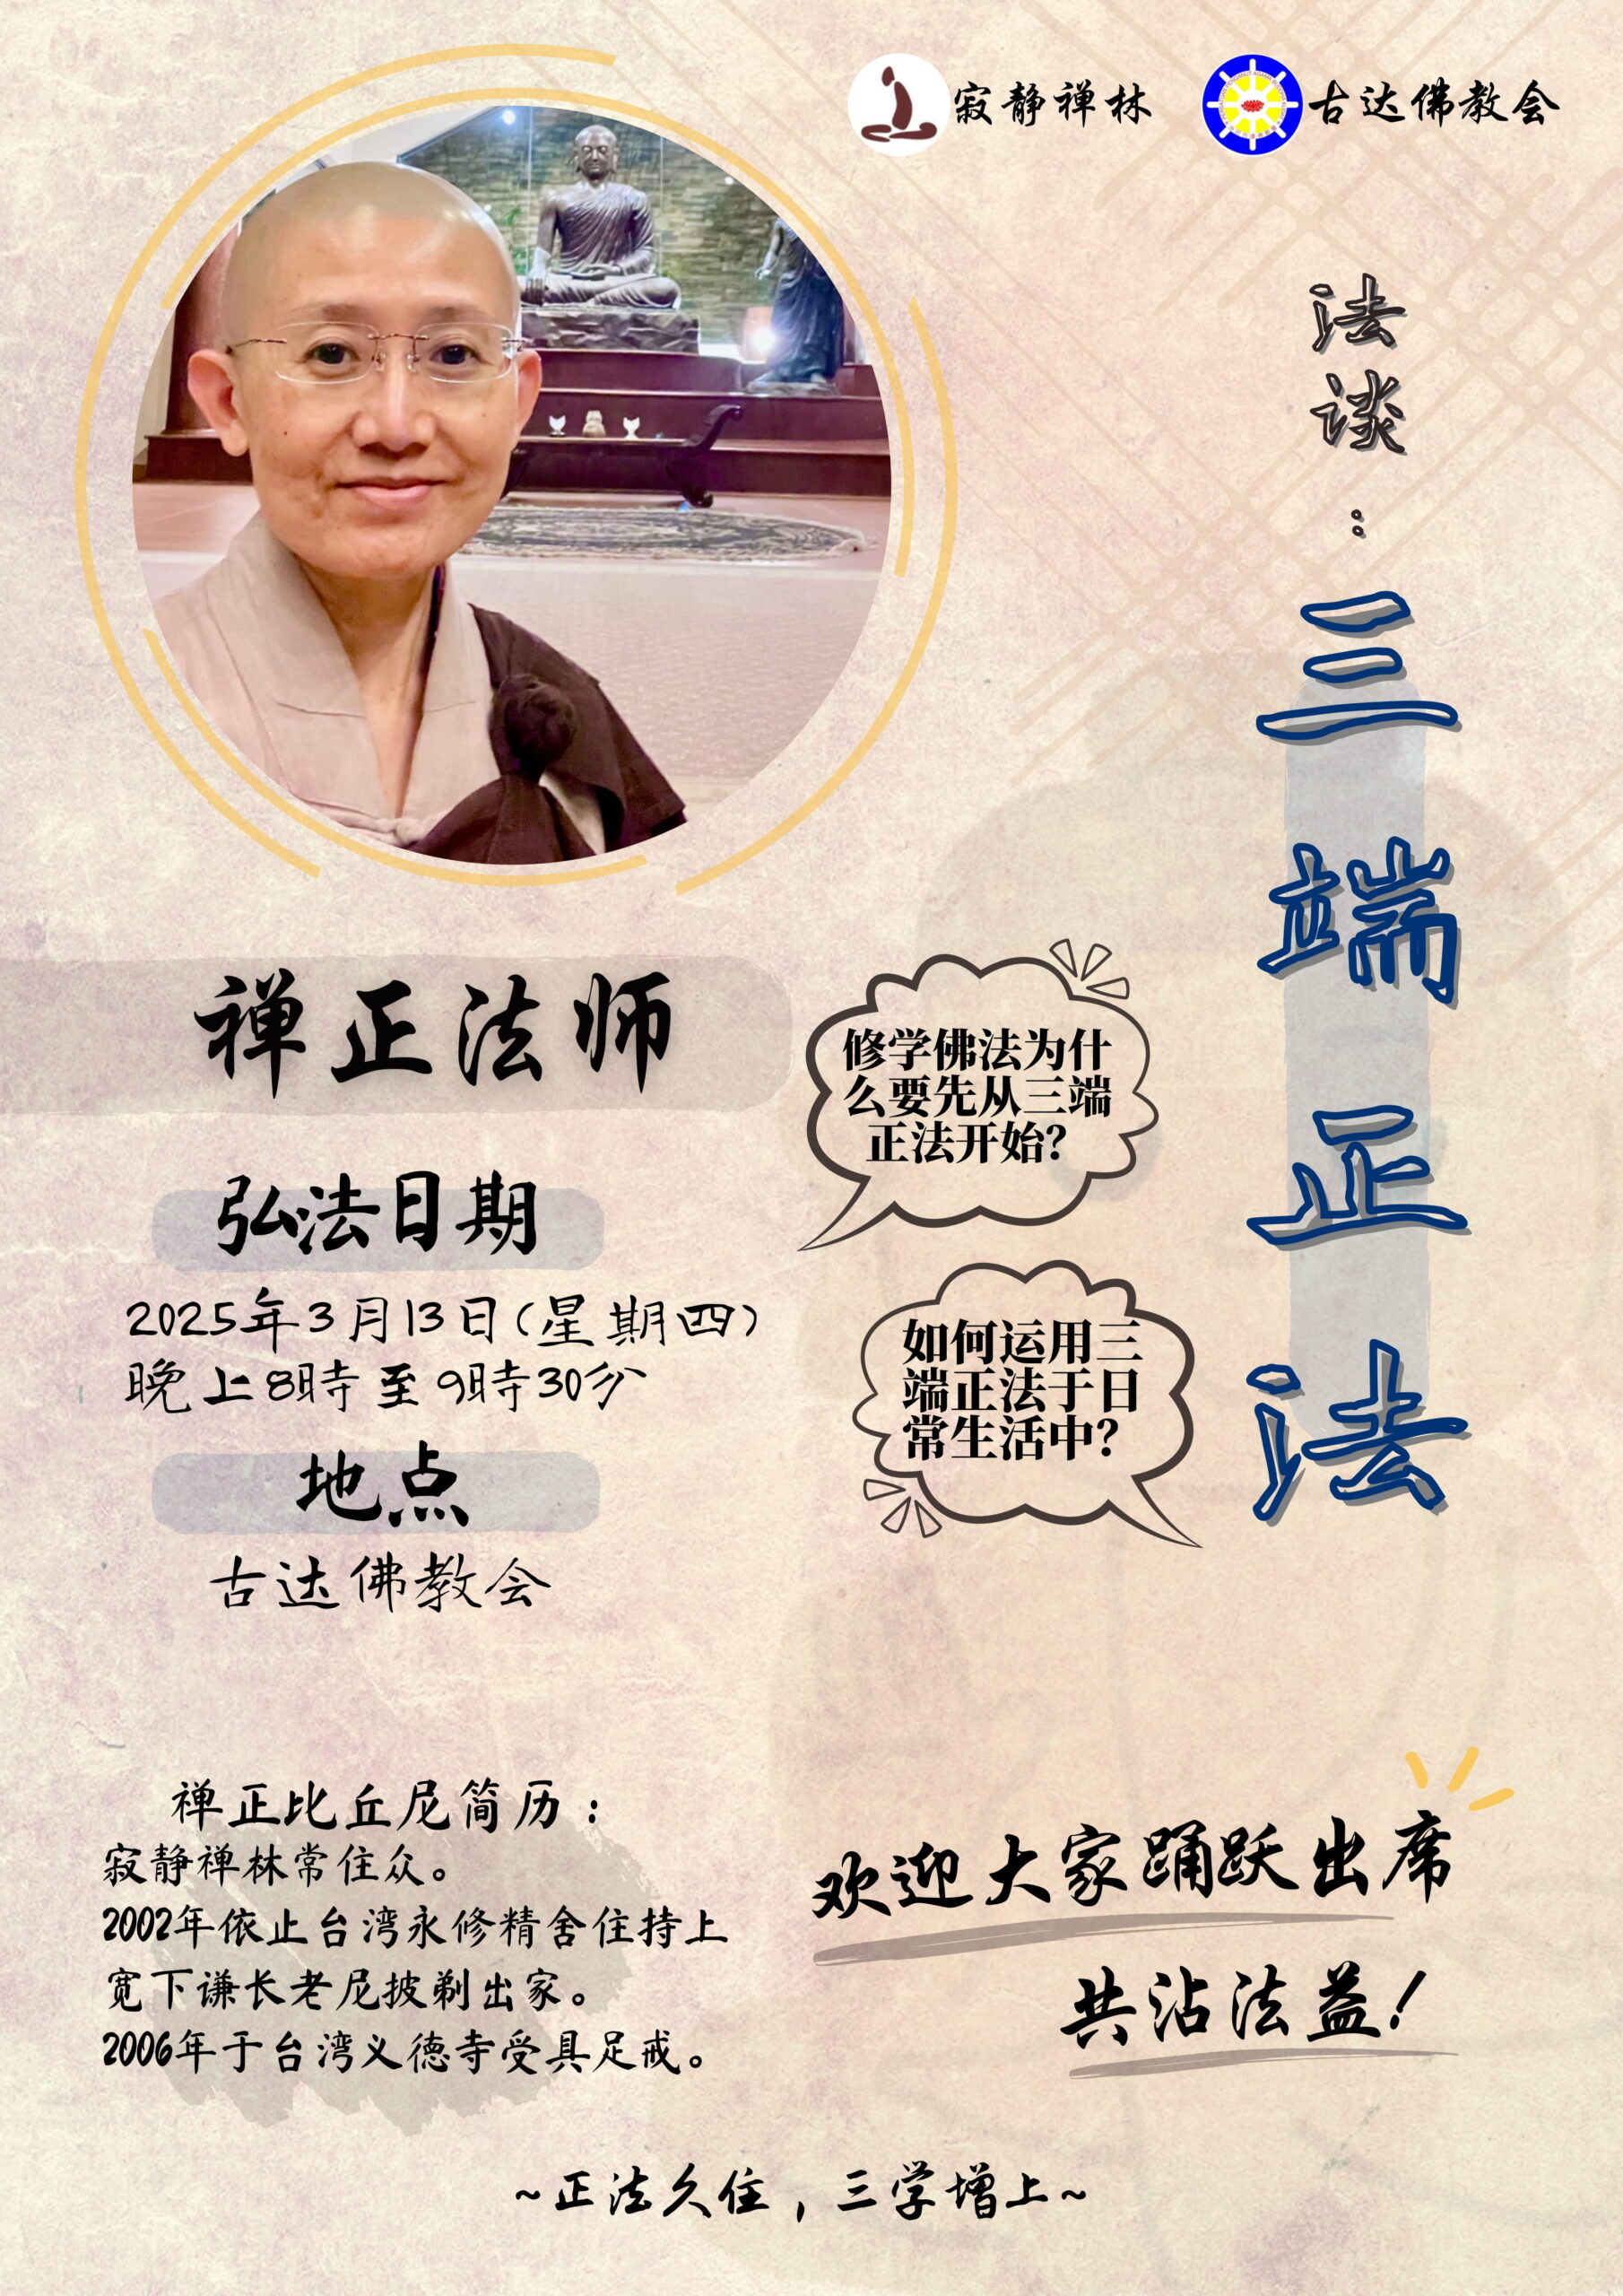 寂静禅林
古达佛教会
法谈：
三端正法
禅正法师
修学佛法为什
么要先从三端
正法开始？
弘法日期
2025年3月13日(星期四)
晚上8時至9時30分
如何运用三
端正法于日
常生活中？
地点
古达佛教会
禅正比丘尼简历：
寂静禅林常住众。
2002年依止台湾永修精舍住持上
宽下谦长老尼披剃出家。
2006年于台湾义德寺受具足戒。
欢迎大家踊跃出席
共沾法益！
~正法久住，三学增上~